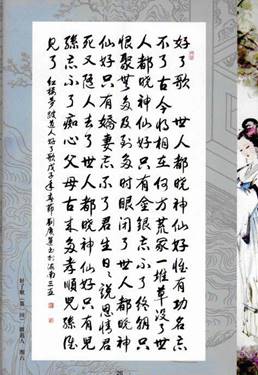 好了歌 世人都晓神仙好惟有功名忘
不了古今将相在何方荒冢一堆草没了世
人都晓神仙好只有金银忘不了终朝只
恨聚无多及到多时眼闭了世人都晓神
仙好只有娇妻忘不了君生日日说恩情君
死又随人去了世人都晓神仙好只有儿
孙忘不了痴心父母古来多孝顺儿孙谁
见了 红楼梦跛道人好了歌戊子年春节刘广书于海南三亚
好了歌（第一回）跛道人